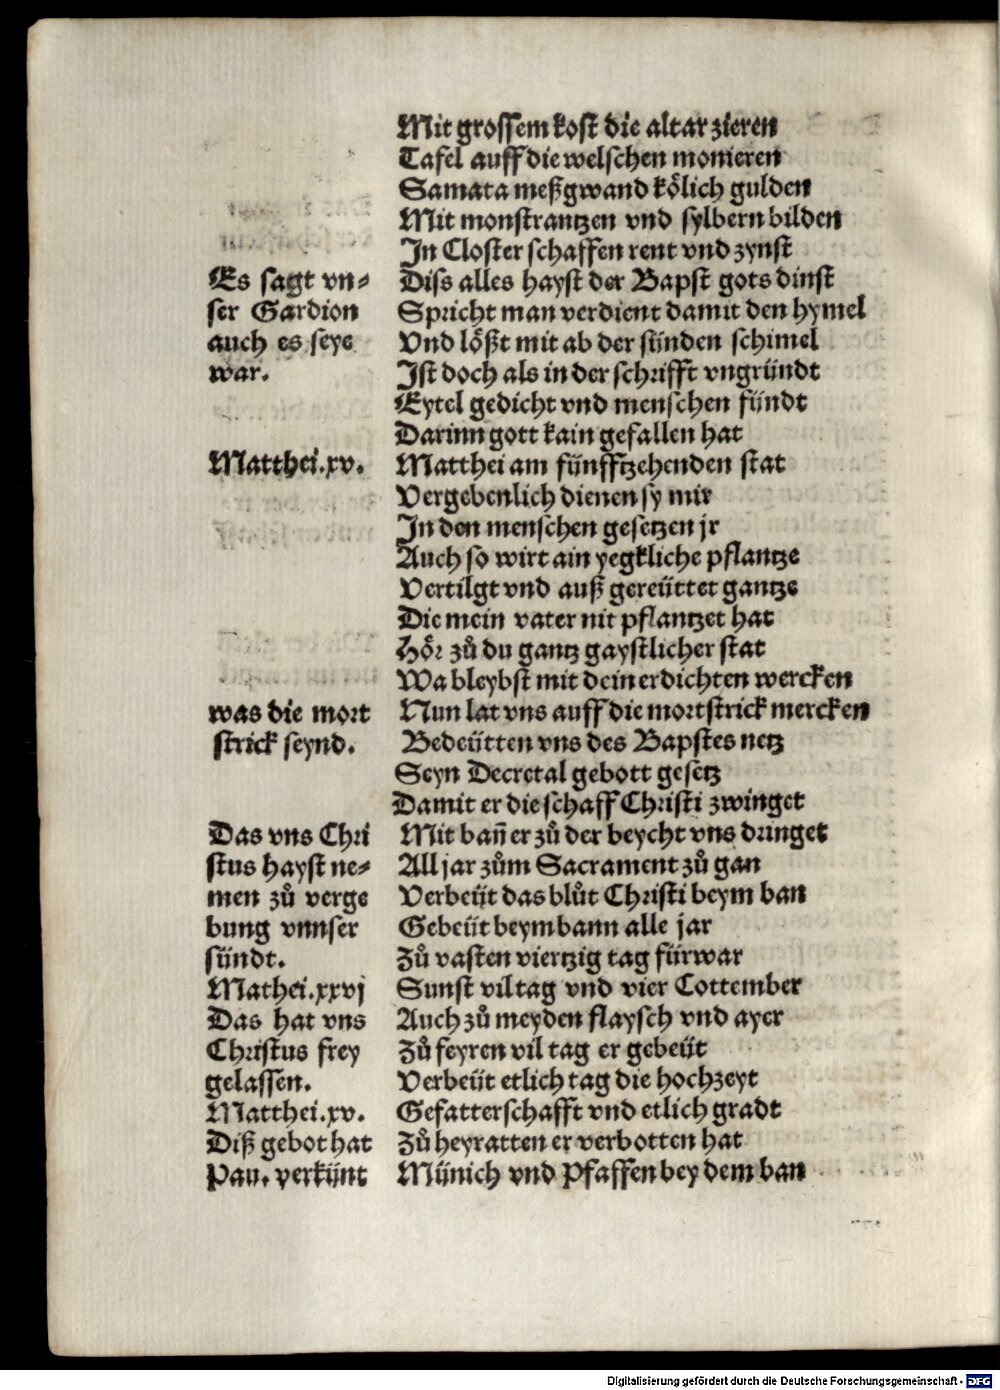 Mit grossem kost die altar zieren
Tafel auff die welschen monieren
Samata meßgwand kölich gulden
Mit monstrantzen vnd sylbern bilden
In Closter schaffen rent vnd zynst
Es sagt vn⸗
ser Gardion
auch es seye
war.
Diss alles hayst der Bapst gots dinst
Spricht man verdient damit den hymel
Vnd lößt mit ab der sünden schimel
Ist doch als in der schrifft vngründt
Eytel gedicht vnd menschen fündt
Darinn gott kain gefallen hat
Matthei.xv.
Matthei am fünfftzehenden stat
Vergebenlich dienen sy mir
In den menschen gesetzen jr
Auch so wirt ain yegkliche pflantze
Vertilgt vnd auß gereüttet gantze
Die mein vater nit pflantzet hat
Hör zů du gantz gaystlicher stat
Wa bleybst mit dein erdichten wercken
was die mort
strick seynd.
Nun lat vns auff die mortstrick mercken
Bedeütten vns des Bapstes netz
Seyn Decretal gebott gesetz
Damit er die schaff Christi zwinget
Das vns Chri
stus hayst ne⸗
men zů verge
bung vnnser
sündt.
Mathei.xxvj
Mit bañ er zů der beycht vns dringet
All jar zům Sacrament zů gan
Verbeüt das blůt Christi beym ban
Gebeüt beym bann alle jar
Zů vasten viertzig tag fürwar
Sunst vil tag vnd vier Cottember
Das hat vns
Christus frey
gelassen.
Matthei.xv.
Auch zů meyden flaysch vnd ayer
Zů feyren vil tag er gebeüt
Verbeüt etlich tag die hochzeyt
Gefatterschafft vnd etlich gradt
Diß gebot hat
Pau. verkünt
Zů heyratten er verbotten hat
Münich vnd Pfaffen bey dem ban
Digitalisierung gefördert durch die Deutsche Forschungsgemeinschaft - DFG